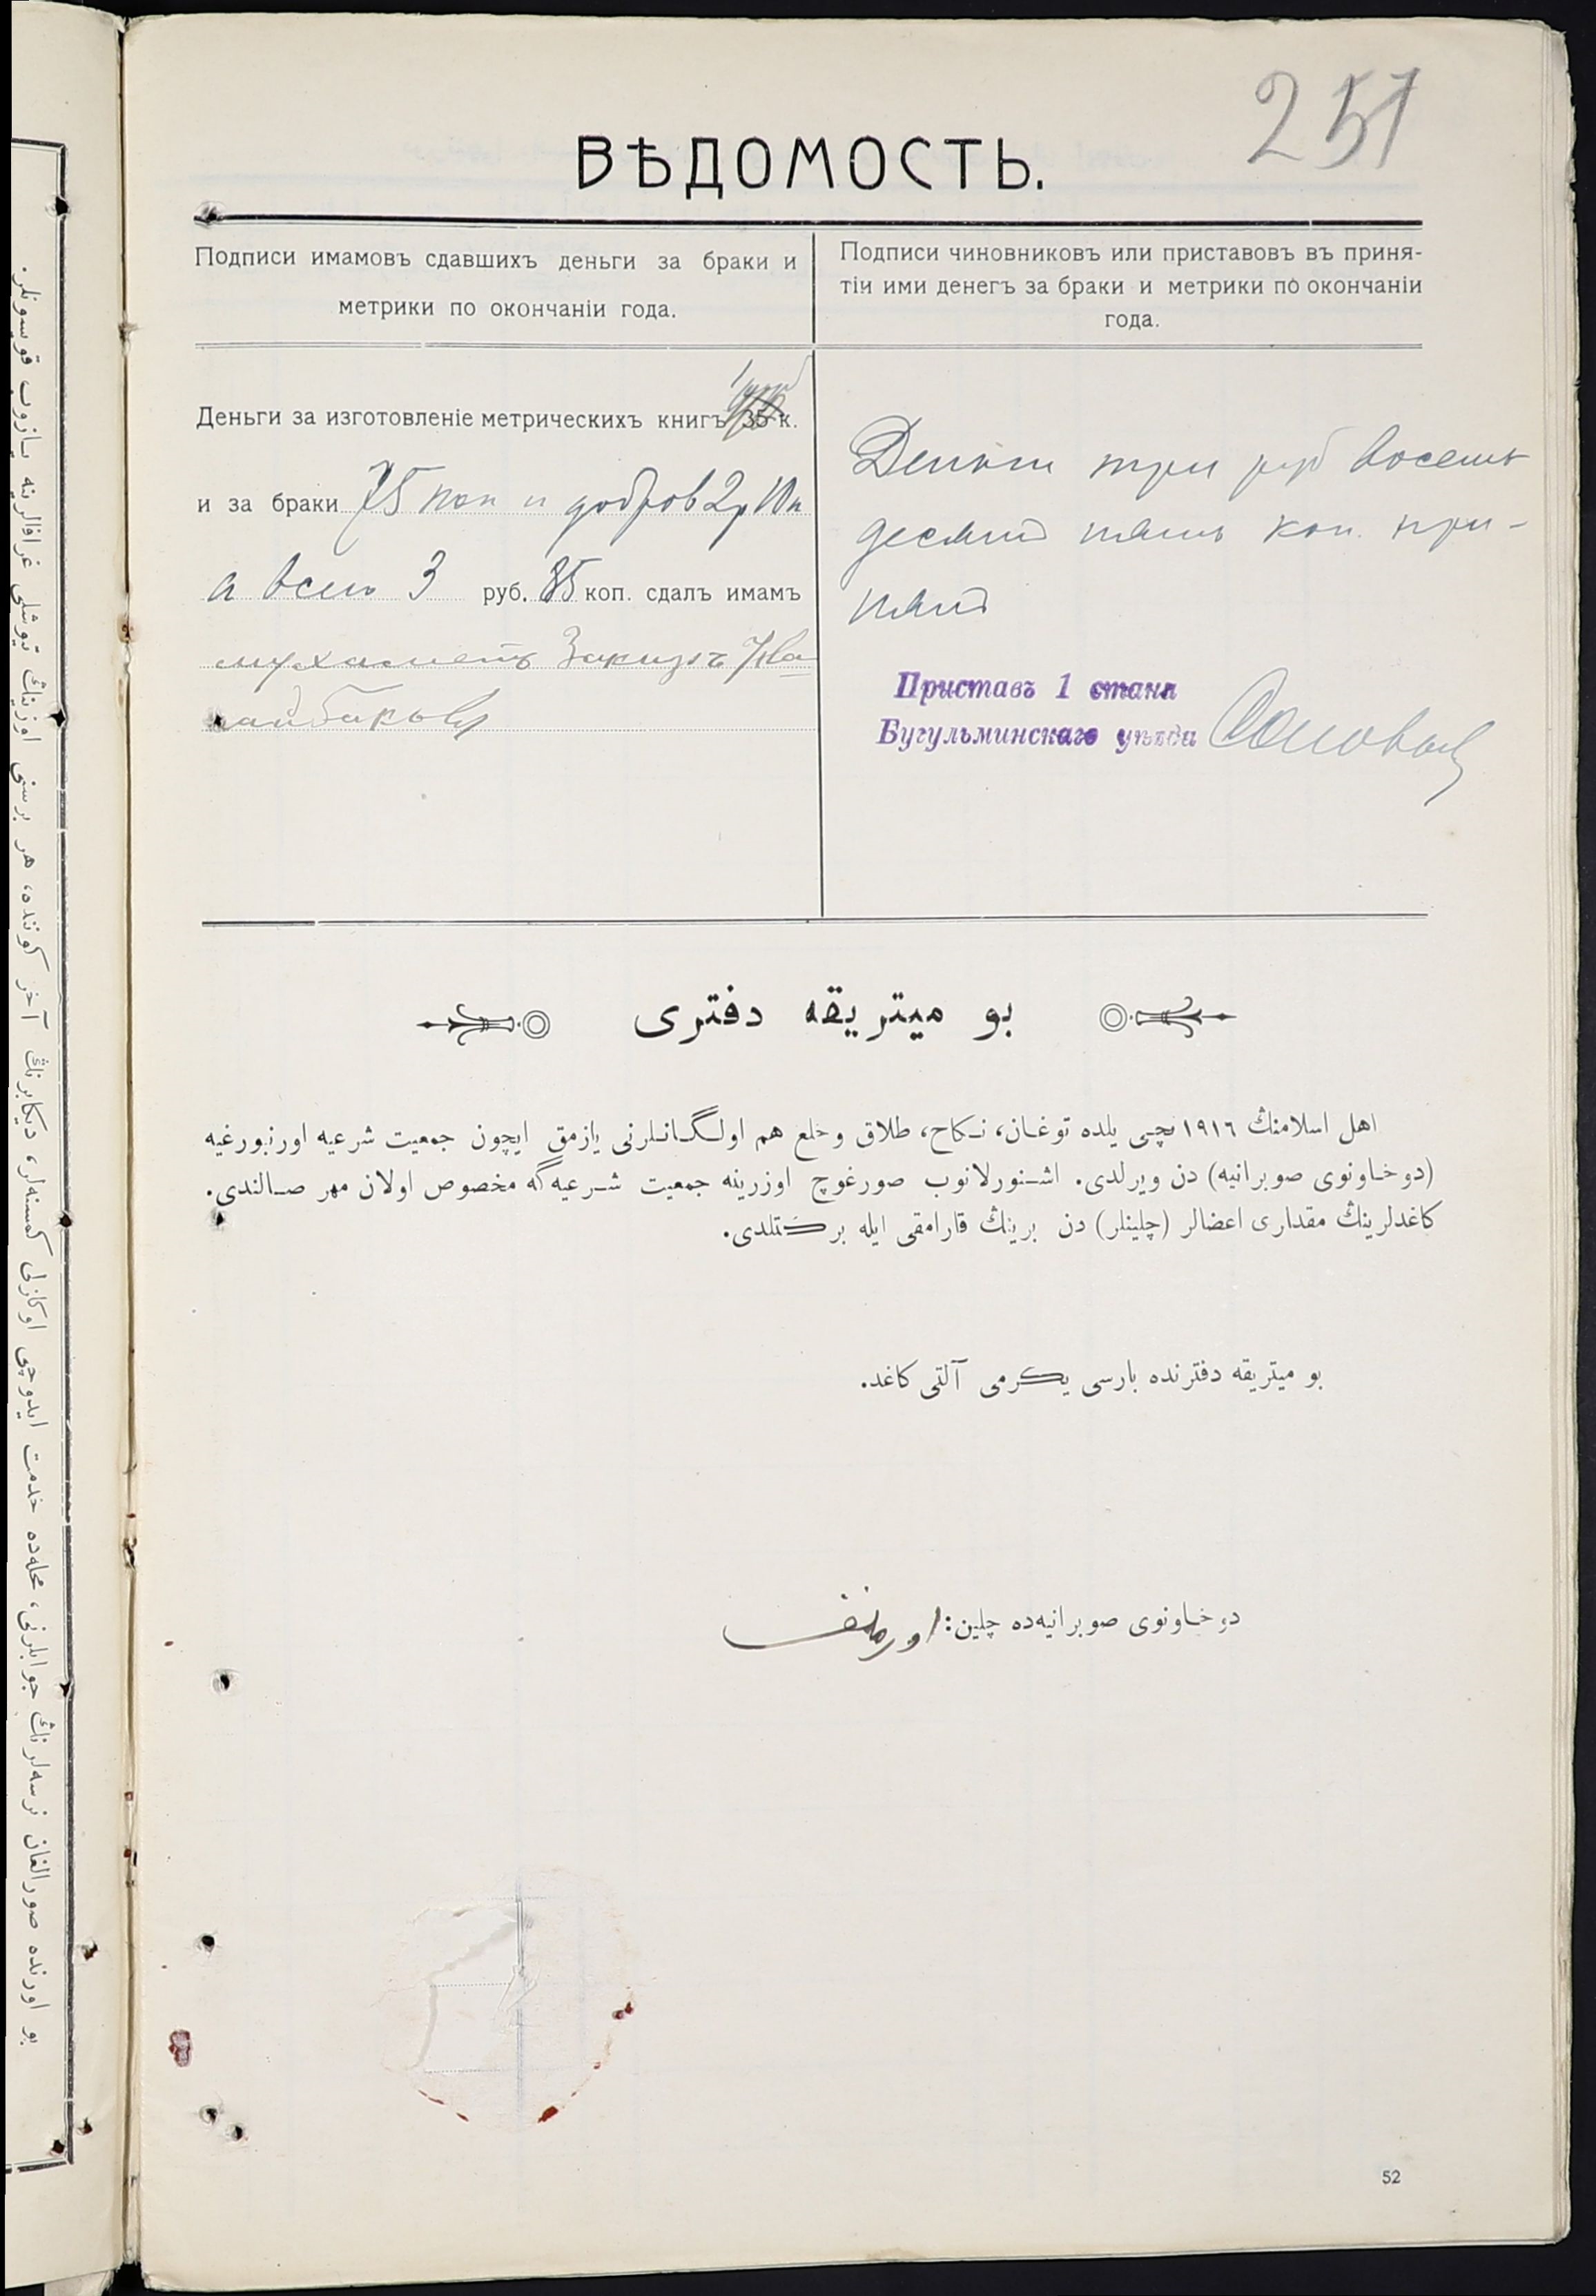 251
ВѢДОМОСТЬ.
Подписи имамовъ сдавшихъ деньги за браки и
метрики по окончаніи года.
Подписи чиновниковъ или приставовъ въ приня-
тіи ими денегъ за браки и метрики по окончаніи
года.
Деньги за изготовленіе метрическихъ книгъ 35 к.
и за браки 75 коп и добров 2р 10к
а всего 3 руб. 85 коп. сдалъ имамъ
мухаметъ Закиръ
Деньги три руб восемь
десятъ пять коп. при-
нялъ
Приставъ 1 стана
Бугульминскаго уѣзда
بو ميتريقه دفترى
اهل اسلامنڭ ١٩١٦ نچى يلده توغان، نكاح، طلاق وخلع هم اولگانلرنى يازمق ايچون جمعيت شرعيه اورنبورغيه
(دوخاونوى صوبرانيه) دن ويرلدى. اشنورلانوب صورغوچ اوزرينه جمعيت شرعيه‌گه مخصوص اولان مهر صالندى.
كاغدلرينڭ مقدارى اعضالر (چلينلر) دن برينڭ قارامقى ايله بركتلدى.
بو ميتريقه دفترنده بارسى يكرمى آلتى كاغد.
دوخاونوى صوبرانيه‌ده چلين:
بو اورنده صورالغان نرسه‌لرنڭ جوابلرنى، محله‌ده خدمت ايدوچى اوكازلى كمسنه‌لر، ديكابرنڭ آخر كوننده، هر برسنى اوزينڭ تيوشلى غرافالرينه يازوب قويسونلر.
52